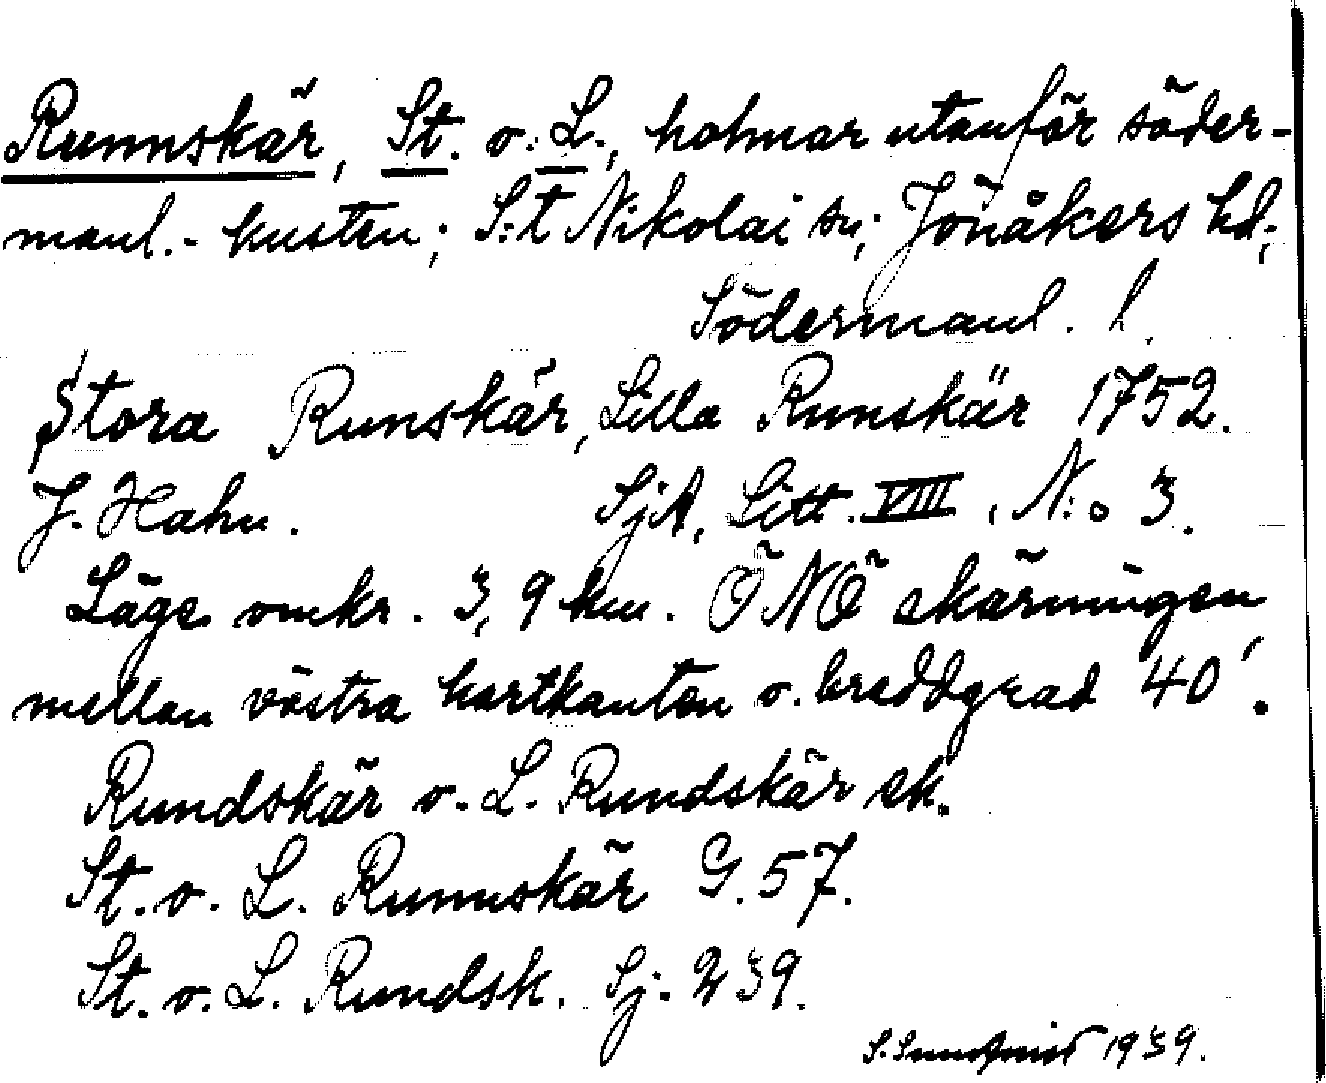 Runnskär, St. o. L., holmar utanför söder-
manl.- kusten; S:t Nikolai sn; Jönåkers hd;
Södermanl. l.
Stora Runskär, Lilla Runskär 1752.
J. Hahn. SjA, Litt. VIII, N:o 3.
Läge omkr. 3,9 km. ÖNÖ skärningen
mellan västra kartkanten o. breddgrad 40'.
Rundskär o. L. Rundskär ek.
St. o. L. Runnskär G. 57.
St. o. L. Rundsk. Sj. 239.
S. 1939.